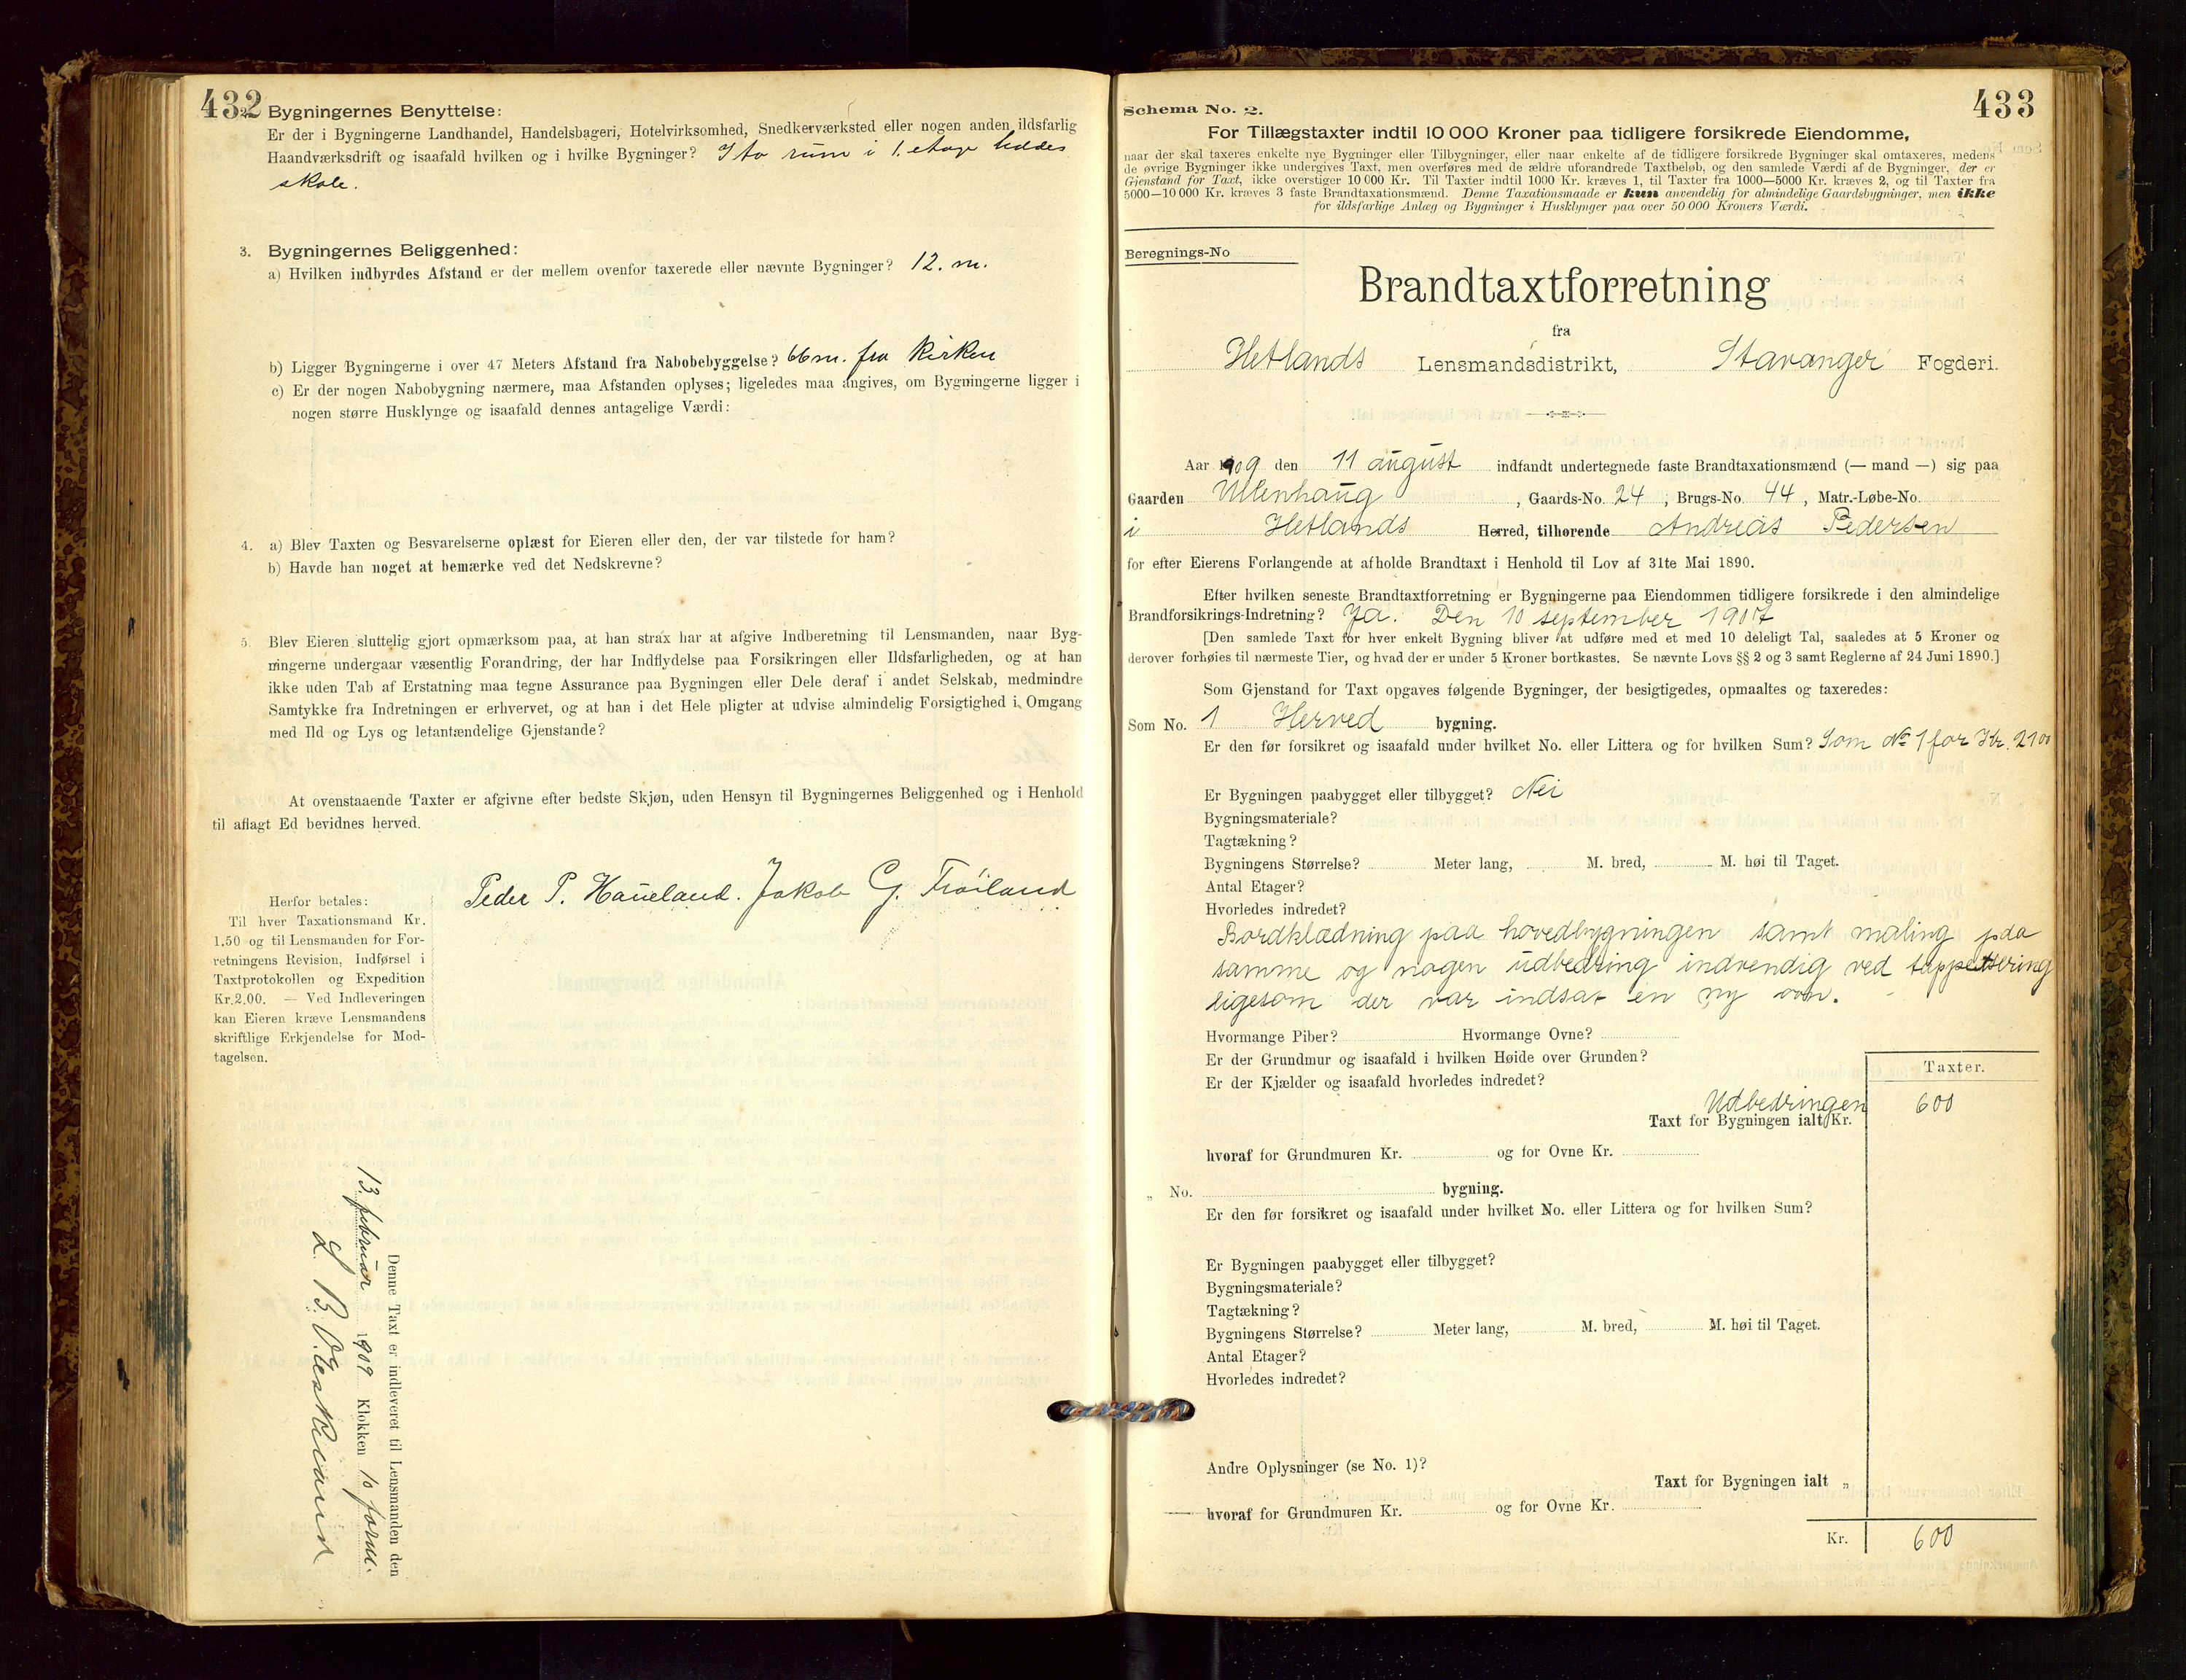 432
2. Bygningernes Benyttelse:
Er der i Bygningerne Landhandel, Handelsbageri, Hotelvirksomhed, Snedkerværksted eller nogen anden ildsfarlig
Haandværksdrift og isaafald hvilken og i hvilke Bygninger? I to rum i 1. etage holdes
skole.
3. Bygningernes Beliggenhed:
a) Hvilken indbyrdes Afstand er der mellem ovenfor taxerede eller nævnte Bygninger? 12. m.
b) Ligger Bygningerne i over 47 Meters Afstand fra Nabobebyggelse? 66 m. fra Kirken
c) Er der nogen Nabobygning nærmere, maa Afstanden oplyses; ligeledes maa angives, om Bygningerne ligger i
nogen større Husklynge og isaafald dennes antagelige Værdi:
4. a) Blev Taxten og Besvarelserne oplæst for Eieren eller den, der var tilstede for ham?
b) Havde han noget at bemærke ved det Nedskrevne?
5. Blev Eieren sluttelig gjort opmærksom paa, at han strax har at afgive Indberetning til Lensmanden, naar Byg-
ningerne undergaar væsentlig Forandring, der har Indflydelse paa Forsikringen eller Ildsfarligheden, og at han
ikke uden Tab af Erstatning maa tegne Assurance paa Bygningen eller Dele deraf i andet Selskab, medmindre
Samtykke fra Indretningen er erhvervet, og at han i det Hele pligter at udvise almindelig Forsigtighed i Omgang
med Ild og Lys og letantændelige Gjenstande?
At ovenstaaende Taxter er afgivne efter bedste Skjøn, uden Hensyn til Bygningernes Beliggenhed og i Henhold
til aflagt Ed bevidnes herved.
Peder P. Haueland. Jakob G. Frøiland
Herfor betales:
Til hver Taxationsmand Kr.
1.50 og til Lensmanden for For-
retningens Revision, Indførsel i
Taxtprotokollen og Expedition
Kr.2.00. — Ved Indleveringen
kan Eieren kræve Lensmandens
skriftlige Erkjendelse for Mod-
tagelsen.
Denne Taxt er indleveret til Lensmanden den
13. februar 1909 Klokken 10 form.
433
Schema No. 2.
For Tillægstaxter indtil 10 000 Kroner paa tidligere forsikrede Eiendomme,
naar der skal taxeres enkelte nye Bygninger eller Tilbygninger, eller naar enkelte af de tidligere forsikrede Bygninger skal omtaxeres, medens
de øvrige Bygninger ikke undergives Taxt, men overføres med de ældre uforandrede Taxtbeløb, og den samlede Værdi af de Bygninger, der er
Gjenstand for Taxt, ikke overstiger 10 000 Kr. Til Taxter indtil 1000 Kr. kræves 1, til Taxter fra 1000—5000 Kr. kræves 2, og til Taxter fra
5000—10 000 Kr. kræves 3 faste Brandtaxationsmænd. Denne Taxationsmaade er kun anvendelig for almindelige Gaardsbygninger, men ikke
for ildsfarlige Anlæg og Bygninger i Husklynger paa over 50 000 Kroners Værdi.
Beregnings-No
Brandtaxtforretning
fra
Hetlands Lensmandsdistrikt, Stavanger Fogderi.
Aar 1909 den 11 august indfandt undertegnede faste Brandtaxationsmænd (— mand —) sig paa
Gaarden Ullenhaug, Gaards-No. 24, Brugs-No. 44, Matr.-Løbe-No.
i Hetlands Herred, tilhørende Andreas Pedersen
for efter Eierens Forlangende at afholde Brandtaxt i Henhold til Lov af 31te Mai 1890.
Efter hvilken seneste Brandtaxtforretning er Bygningerne paa Eiendommen tidligere forsikrede i den almindelige
Brandforsikrings-Indretning? Ja. Den 10 september 1907
[Den samlede Taxt for hver enkelt Bygning bliver at udføre med et med 10 deleligt Tal, saaledes at 5 Kroner og
derover forhøies til nærmeste Tier, og hvad der er under 5 Kroner bortkastes. Se nævnte Lovs §§ 2 og 3 samt Reglerne af 24 Juni 1890.]
Som Gjenstand for Taxt opgaves følgende Bygninger, der besigtigedes, opmaaltes og taxeredes:
Som No. 1 Herved bygning.
Er den før forsikret og isaafald under hvilket No. eller Littera og for hvilken Sum? Som No 1 for Kr. 2100
Er Bygningen paabygget eller tilbygget? Nei
Bygningsmateriale?
Tagtækning?
Bygningens Størrelse? Meter lang, M. bred, M. høi til Taget.
Antal Etager?
Hvorledes indredet?
Bordklædning paa hovedbygningen samt maling paa
samme og nogen udbedring indvendig ved tappetsering
ligesom der var indsat en ny ovn.
Hvormange Piber? Hvormange Ovne?
Er der Grundmur og isaafald i hvilken Høide over Grunden?
Er der Kjælder og isaafald hvorledes indredet?
Taxter.
Udbedringen
Taxt for Bygningen ialt Kr. 600
hvoraf for Grundmuren Kr. og for Ovne Kr.
„ No. bygning.
Er den før forsikret og isaafald under hvilket No. eller Littera og for hvilken Sum?
Er Bygningen paabygget eller tilbygget?
Bygningsmateriale?
Tagtækning?
Bygningens Størrelse? Meter lang, M. bred, M. høi til Taget.
Antal Etager?
Hvorledes indredet?
Andre Oplysninger (se No. 1)?
Taxt for Bygningen ialt „
hvoraf for Grundmuren Kr. og for Ovne Kr.
Kr. 600